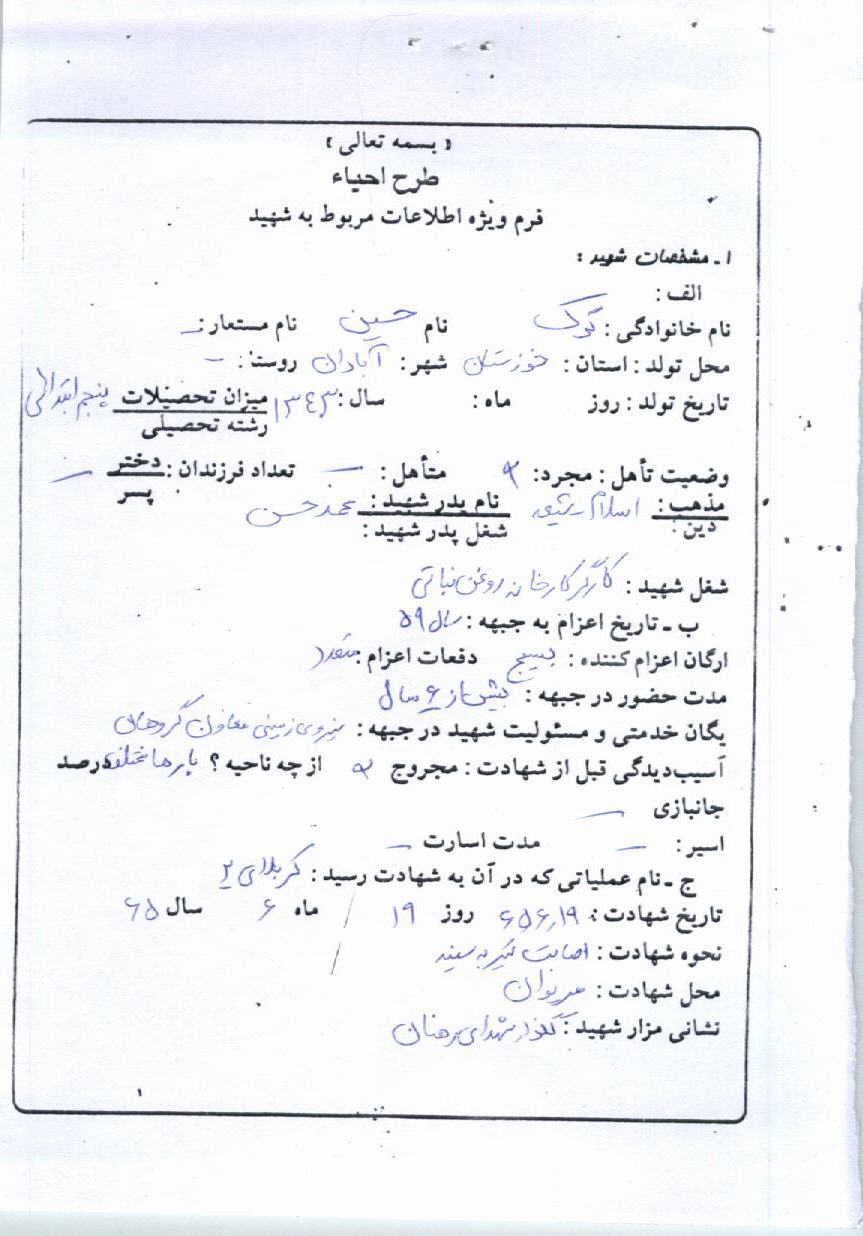 ( بسمه تعالی )
طرح احیاء
فرم ویژه اطلاعات مربوط به شهید
۱ ـ مشخصات شهید :
الف :
نام خانوادگی : کوک نام حسین نام مستعار : ـ
محل تولد : استان : خوزستان شهر : آبادان روستا : ـ
تاریخ تولد : روز ماه : سال : ۱۳۴۳ میزان تحصیلات پنجم ابتدائی
رشته تحصیلی
وضعیت تأهل : مجرد : متأهل : ـ تعداد فرزندان : دختر ـ
پسر
مذهب : اسلام شیعه نام پدر شهید : محمدحسن
دین : شغل پدر شهید :
شغل شهید : کارگر کارخانه روغن نباتی
ب ـ تاریخ اعزام به جبهه : سال ۵۹
ارگان اعزام کننده : بسیج دفعات اعزام : متعدد
مدت حضور در جبهه : بیش از ۶ سال
یگان خدمتی و مسئولیت شهید در جبهه : نیروی زمینی معاون گروهان
آسیب‌دیدگی قبل از شهادت : مجروح از چه ناحیه ؟ درصد
جانبازی ـ
اسیر : ـ مدت اسارت ـ
ج ـ نام عملیاتی که در آن به شهادت رسید : کربلای ۲
تاریخ شهادت : ۶۵،۶،۱۹ روز ۱۹ ماه ۶ سال ۶۵
نحوه شهادت : اصابت تیر به سینه
محل شهادت : مریوان
نشانی مزار شهید : گلزار شهدای
۱